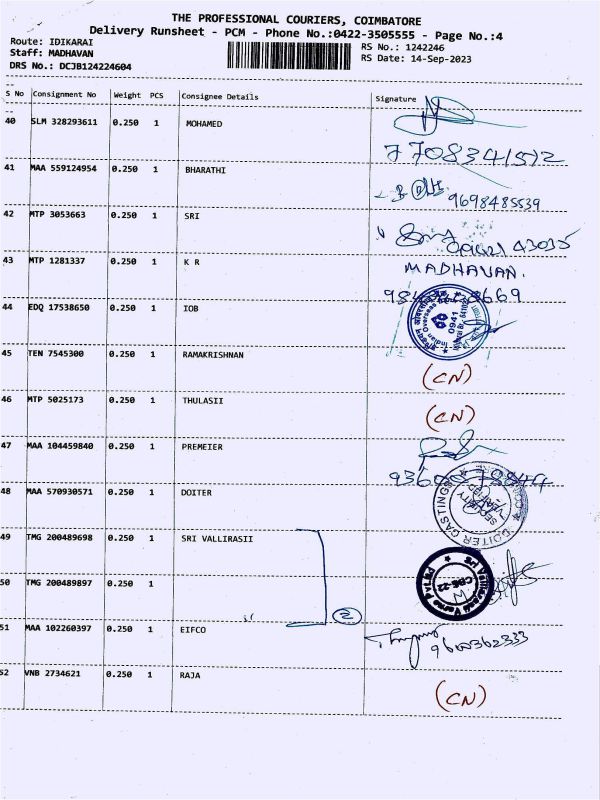 THE PROFESSIONAL COURIERS, COIMBATORE
Delivery Runsheet - PCM - Phone No.:0422-3505555 - Page No.:4
Route: IDIKARAI
Staff: MADHAVAN
DRS No.: DCJB124224604
RS No.: 1242246
RS Date: 14-Sep-2023
S No Consignment No Weight PCS Consignee Details Signature
40 SLM 328293611 0.250 1 MOHAMED
7708341572
41 MAA 559124954 0.250 1 BHARATHI
9698485539
42 MTP 3053663 0.250 1 SRI
43 MTP 1281337 0.250 1 K R
MADHAVAN.
44 EDQ 17538650 0.250 1 IOB
0941
45 TEN 7545300 0.250 1 RAMAKRISHNAN
(CN)
46 MTP 5025173 0.250 1 THULASII
(CN)
47 MAA 104459840 0.250 1 PREMEIER
48 MAA 570930571 0.250 1 DOITER
DOITER CASTINGS
SECURITY
49 TMG 200489698 0.250 1 SRI VALLIRASII
50 TMG 200489897 0.250 1
2
CBE-22
51 MAA 102260397 0.250 1 EIFCO
9600362333
52 VNB 2734621 0.250 1 RAJA
(CN)